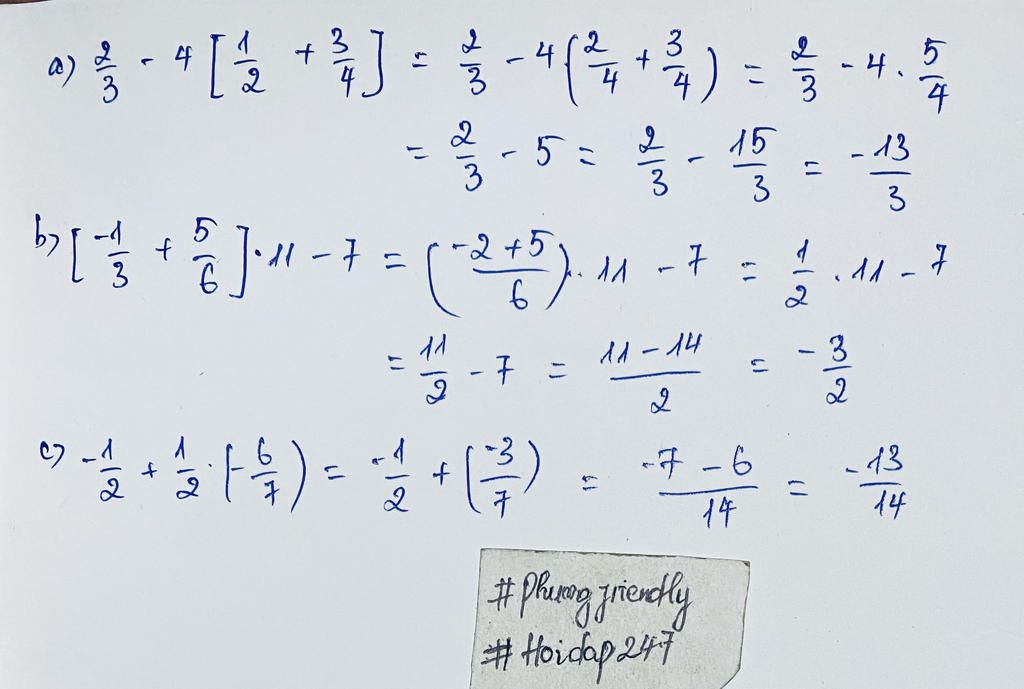 a) 2/3 - 4 [1/2 + 3/4] = 2/3 - 4 (2/4 + 3/4) = 2/3 - 4 . 5/4
= 2/3 - 5 = 2/3 - 15/3 = -13/3
b) [-1/3 + 5/6] . 11 - 7 = (-2 + 5/6) . 11 - 7 = 1/2 . 11 - 7
= 11/2 - 7 = 11 - 14/2 = -3/2
c) -1/2 + 1/2 . (-6/7) = -1/2 + (-3/7) = -7 - 6/14 = -13/14
# Phuong friendly
# Hoidap 247